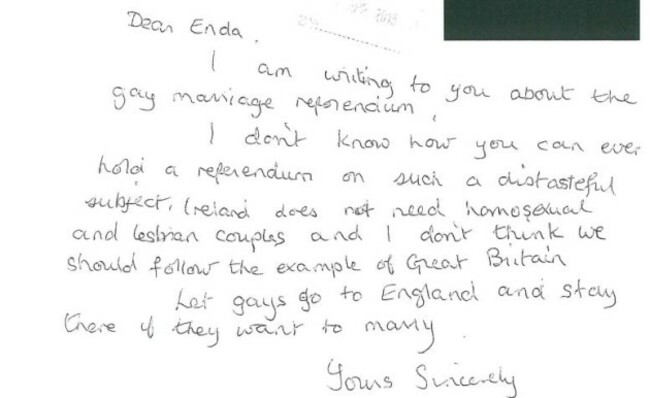 Dear Enda.
I am writing to you about the
gay marriage referendum.
I don't know how you can ever
hold a referendum on such a distasteful
subject. Ireland does not need homosexual
and lesbian couples and I don't think we
should follow the example of Great Britain
Let gays go to England and stay
there if they want to marry.
Yours Sincerely